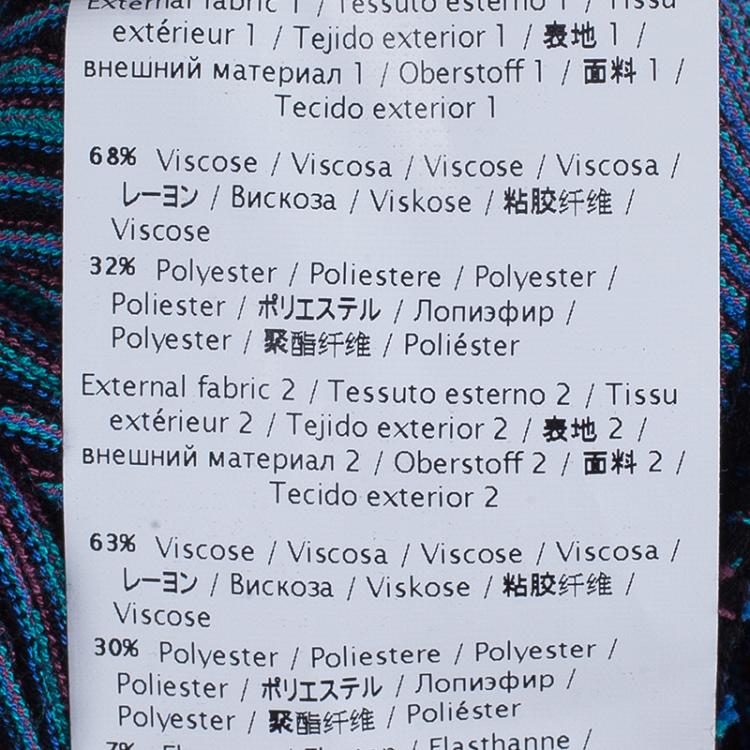 External fabric 1 / Tessuto esterno 1 / Tissu
extérieur 1 / Tejido exterior 1 / 表地 1 /
внешний материал 1 / Oberstoff 1 / 面料 1 /
Tecido exterior 1
68% Viscose / Viscosa / Viscose / Viscosa /
レーヨン / Вискоза / Viskose / 粘胶纤维 /
Viscose
32% Polyester / Poliestere / Polyester /
Poliester / ポリエステル / Лопиэфир /
Polyester / 聚酯纤维 / Poliéster
External fabric 2 / Tessuto esterno 2 / Tissu
extérieur 2 / Tejido exterior 2 / 表地 2 /
внешний материал 2 / Oberstoff 2 / 面料 2 /
Tecido exterior 2
63% Viscose / Viscosa / Viscose / Viscosa /
レーヨン / Вискоза / Viskose / 粘胶纤维 /
Viscose
30% Polyester / Poliestere / Polyester /
Poliester / ポリエステル / Лопиэфир /
Polyester / 聚酯纤维 / Poliéster
7% / Elasthanne /